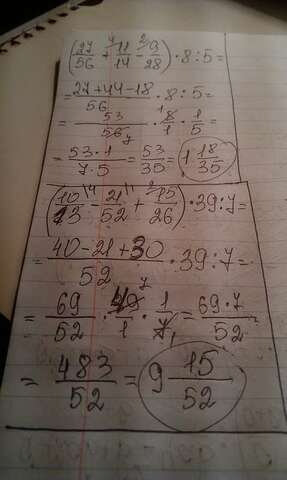 (27/56 + 11/14 ⁴ - 9/28 ²) · 8 : 5 =
= (27 + 44 - 18)/56 · 8 : 5 =
= 53/56 ₇ · ¹ 8/1 · 1/5 =
= (53 · 1)/(7 · 5) = 53/35 = 1 18/35
(10/13 ⁴ - 21/52 ¹ + 15/26 ²) · 39 : 7 =
= (40 - 21 + 30)/52 · 39 : 7 =
= 69/52 · 49/1 ⁷ · 1/7 ₁ = (69 · 7)/52 =
= 483/52 = 9 15/52